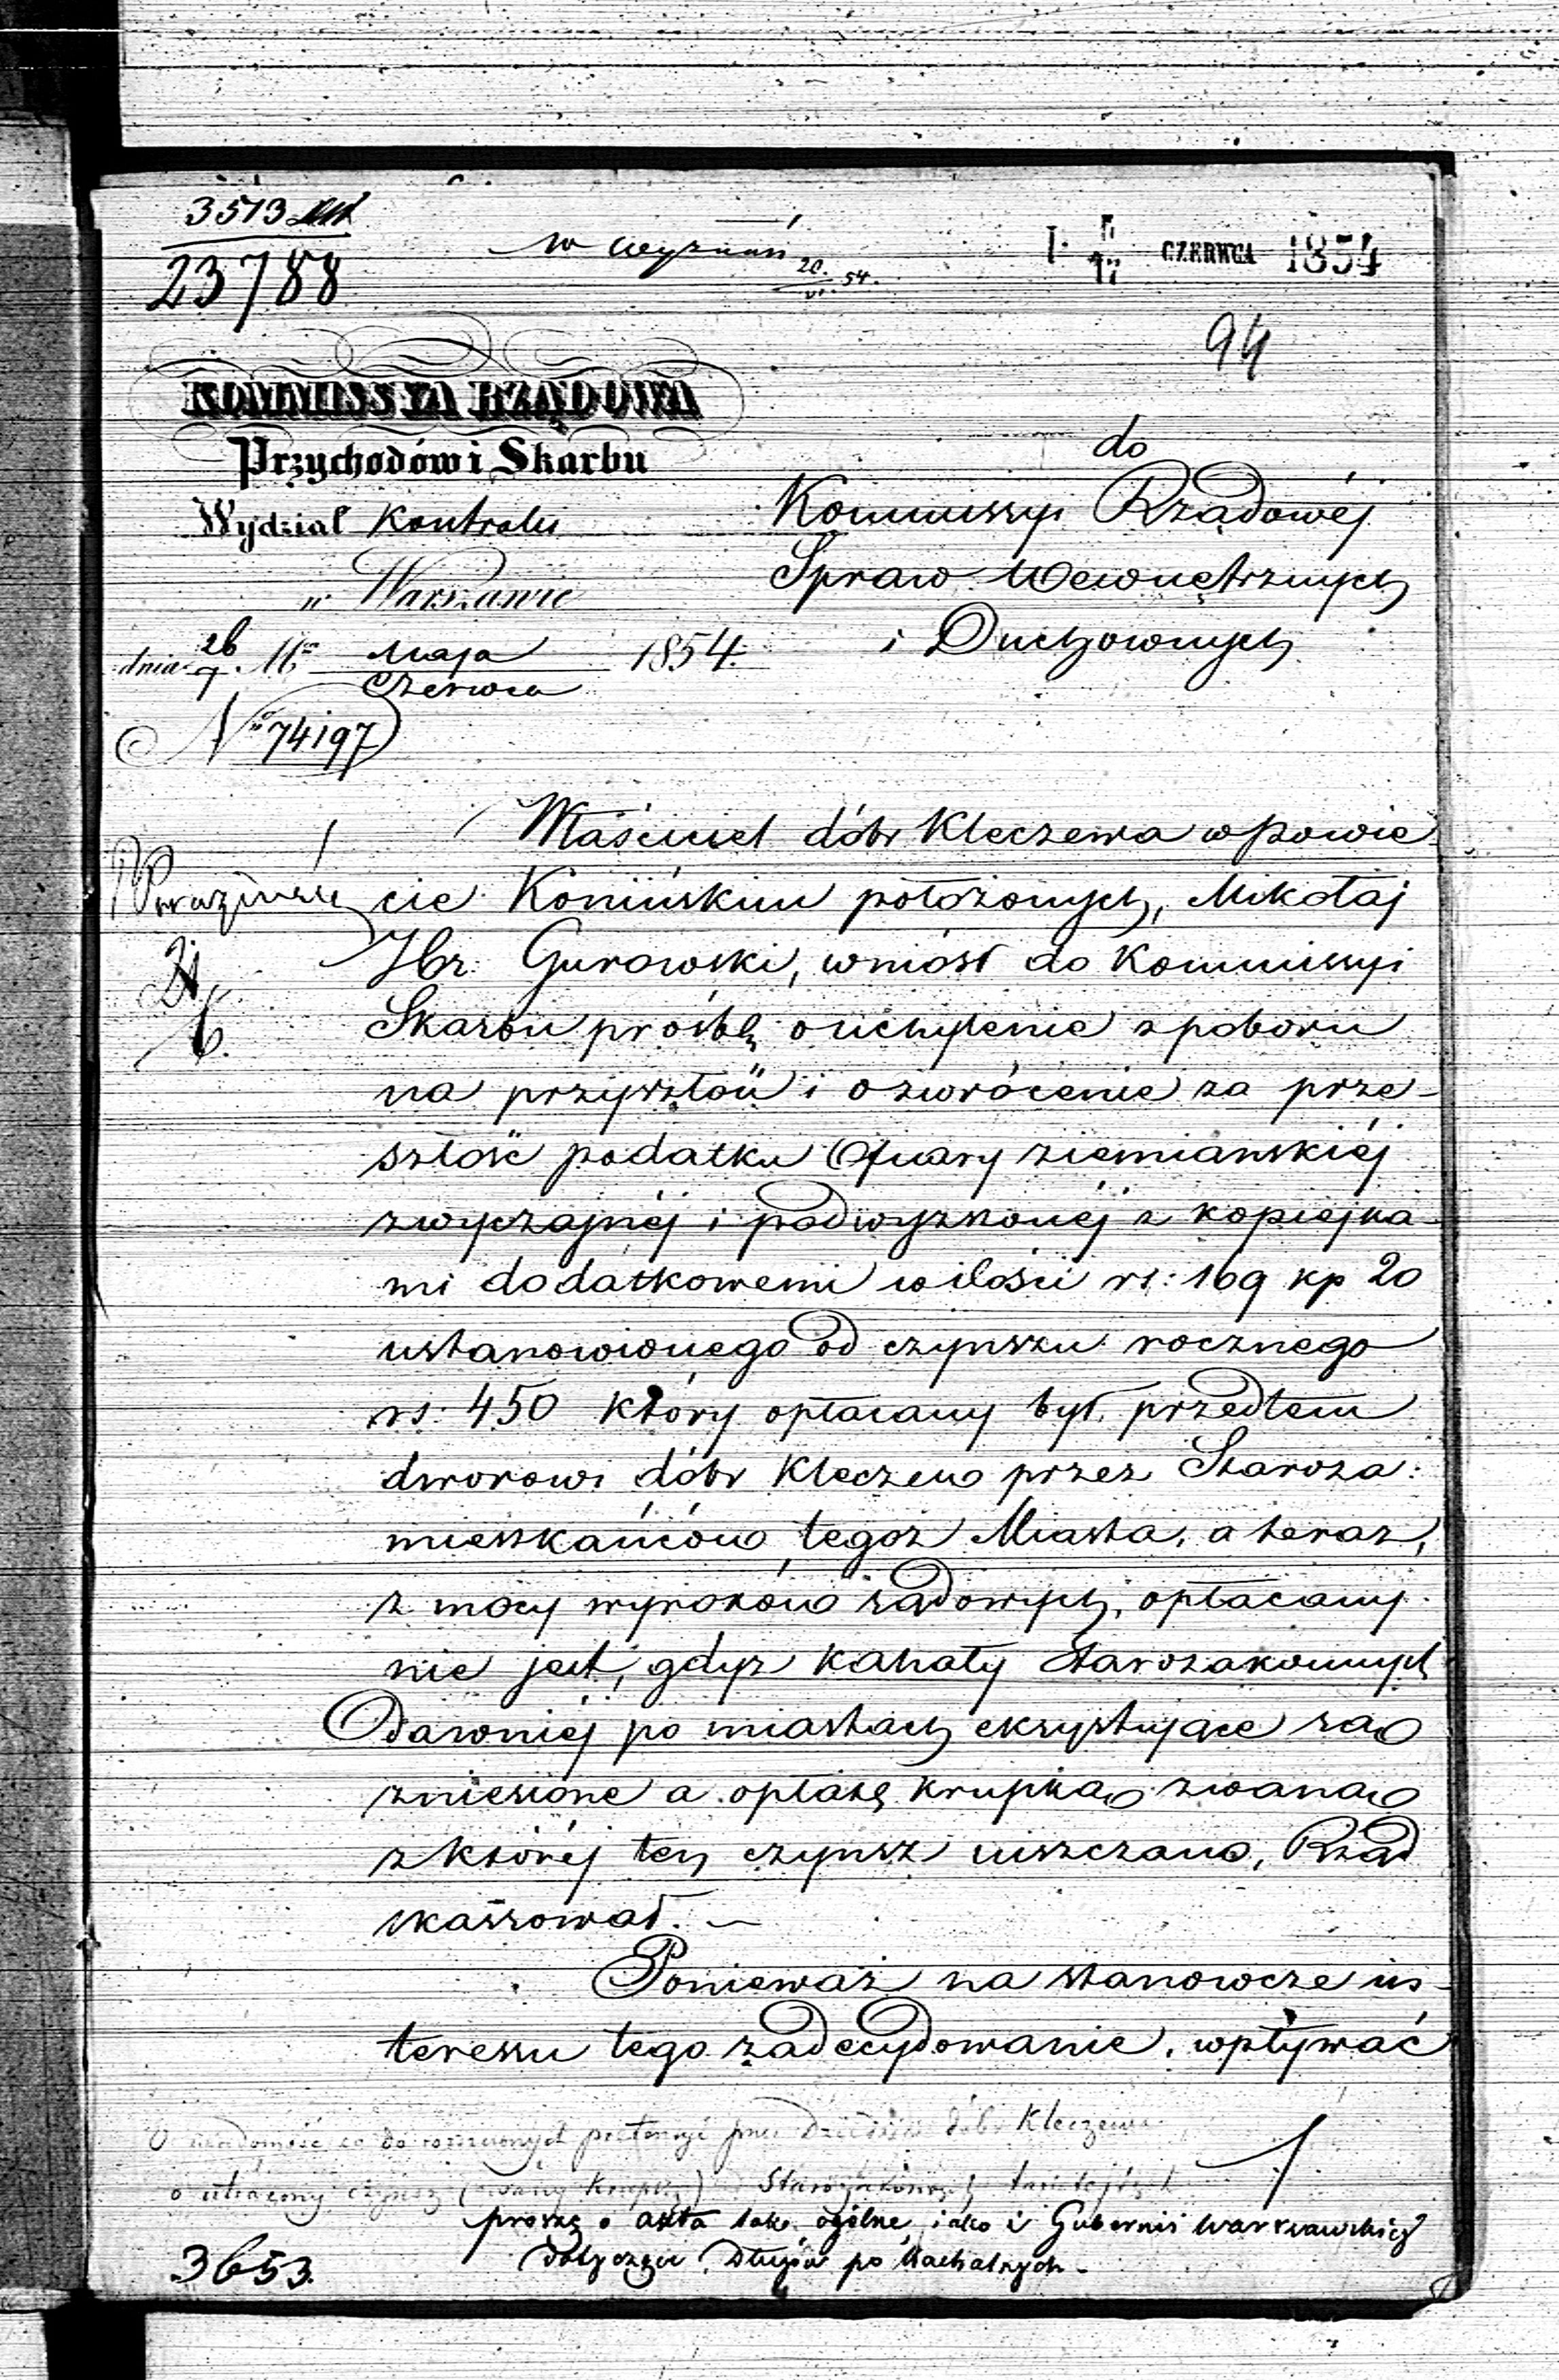 3513
23788
w Wyznań
20/VI. 54.
5/17 CZERWCA 1854
94
KOMMISSYA RZĄDOWA
Przychodów i Skarbu
Wydział Kontroli
w Warszawie
dnia 26/7 Mca Maja/Czerwca 1854.
No 74197
do
Kommissyi Rządowéj
Spraw Wewnętrznych
i Duchownych
Właściciel dóbr Kleczewa w powie-
cie Konińskim położonych, Mikołaj
Hbr: Gurowski, wniósł do Kommissyi
Skarbu prośbę o uchylenie z poboru
na przyszłość i o zwrócenie za prze-
szłość podatku Ofiary ziemiańskiéj
zwyczajnéj i podwyższonéj z kopiejka-
mi dodatkowemi w ilości rs: 169 kp 20
ustanowionego od czynszu rocznego
rs: 450 który opłacany był przedtem
dworowi dóbr Kleczewo przez Staroza:
mieszkańców tegoż Miasta, a teraz,
z mocy wyroków sądowych, opłacany
nie jest, gdyż kahały Starozakonnych
dawniéj po miastach exystujące są
zniesione a opłatę krupką zwaną
z któréj ten czynsz uiszczano, Rząd
skassował. —
Ponieważ na stanowcze in-
teressu tego zadecydowanie, wpływać
21/6.
Wiadomość co do roszczonych pretensyi przez Dziedzica dóbr Kleczewa
o utracony czynsz (zwany Krupką) Starozakonnych tamtejszych
proszę o akta tak ogólne, jako i Gubernii Warszawskiéj
dotyczące Długów po Kachalnych.
3653.